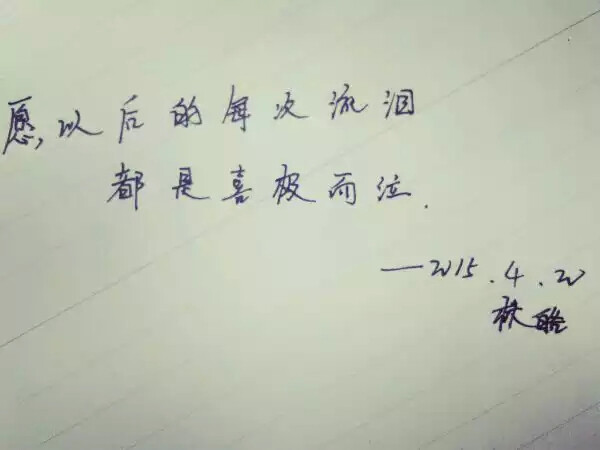 愿以后的每次流泪
都是喜极而泣.
—2015.4.20
林